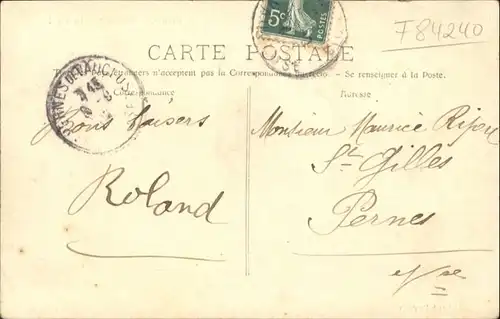 5c
POSTES
F84240
CARTE POSTALE
n'acceptent pas la Correspondance — Se renseigner à la Poste.
Correspondance
Adresse
Bons Baisers
Roland
Monsieur Maurice
St Gilles
Pernes